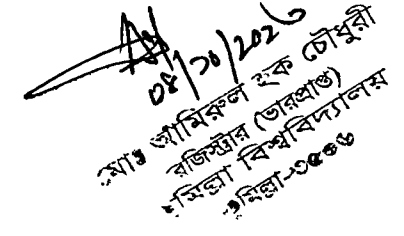 ০৪/১০/২০২৩
মোঃ আমিরুল হক চৌধুরী
রেজিস্ট্রার (ভারপ্রাপ্ত)
কুমিল্লা বিশ্ববিদ্যালয়
কুমিল্লা-৩৫০৬